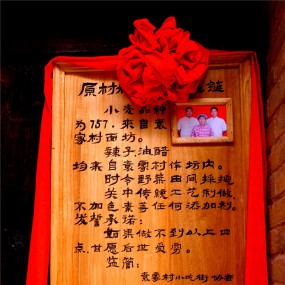 原材料 链
小麦品种
为757.来自袁
家村面坊。
辣子油醋
均来自袁家村作坊内。
时令野菜田间採摘
关中传统工艺制做
不加色素等任何添加剂。
发誓承诺:
如果做不到以上四
点甘愿后世受穷。
监制:
袁家村小吃街 协会